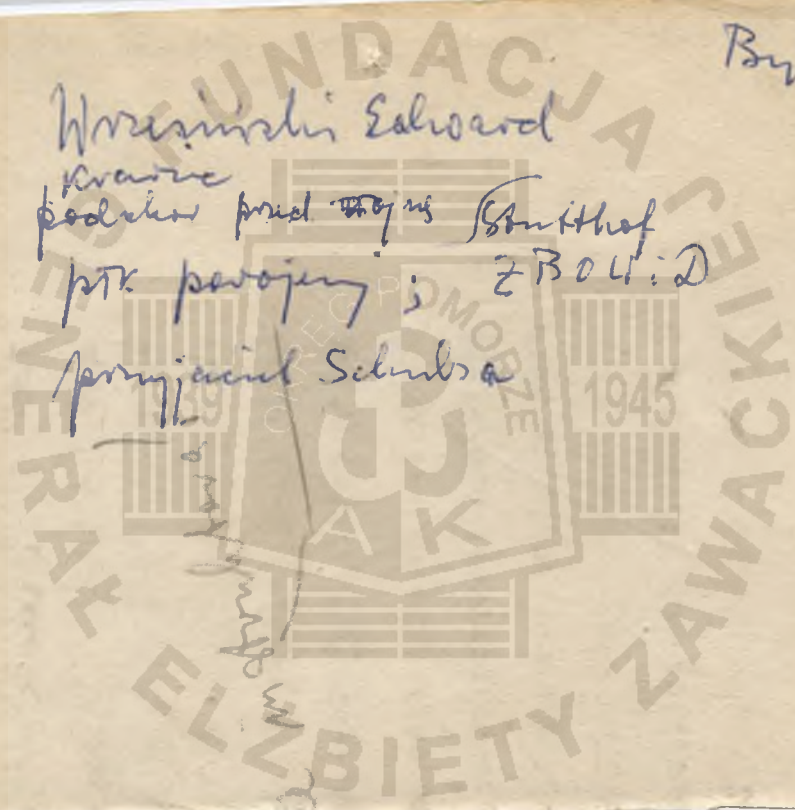 By
Wrzesiński Edward
podchor przed wojną Stutthof
płk powojenny ; ZBOWiD
przyjaciel Schulza
FUNDACJA
GENERAŁ ELŻBIETY ZAWACKIEJ
OKRĘG POMORZE
1939
1945
AK